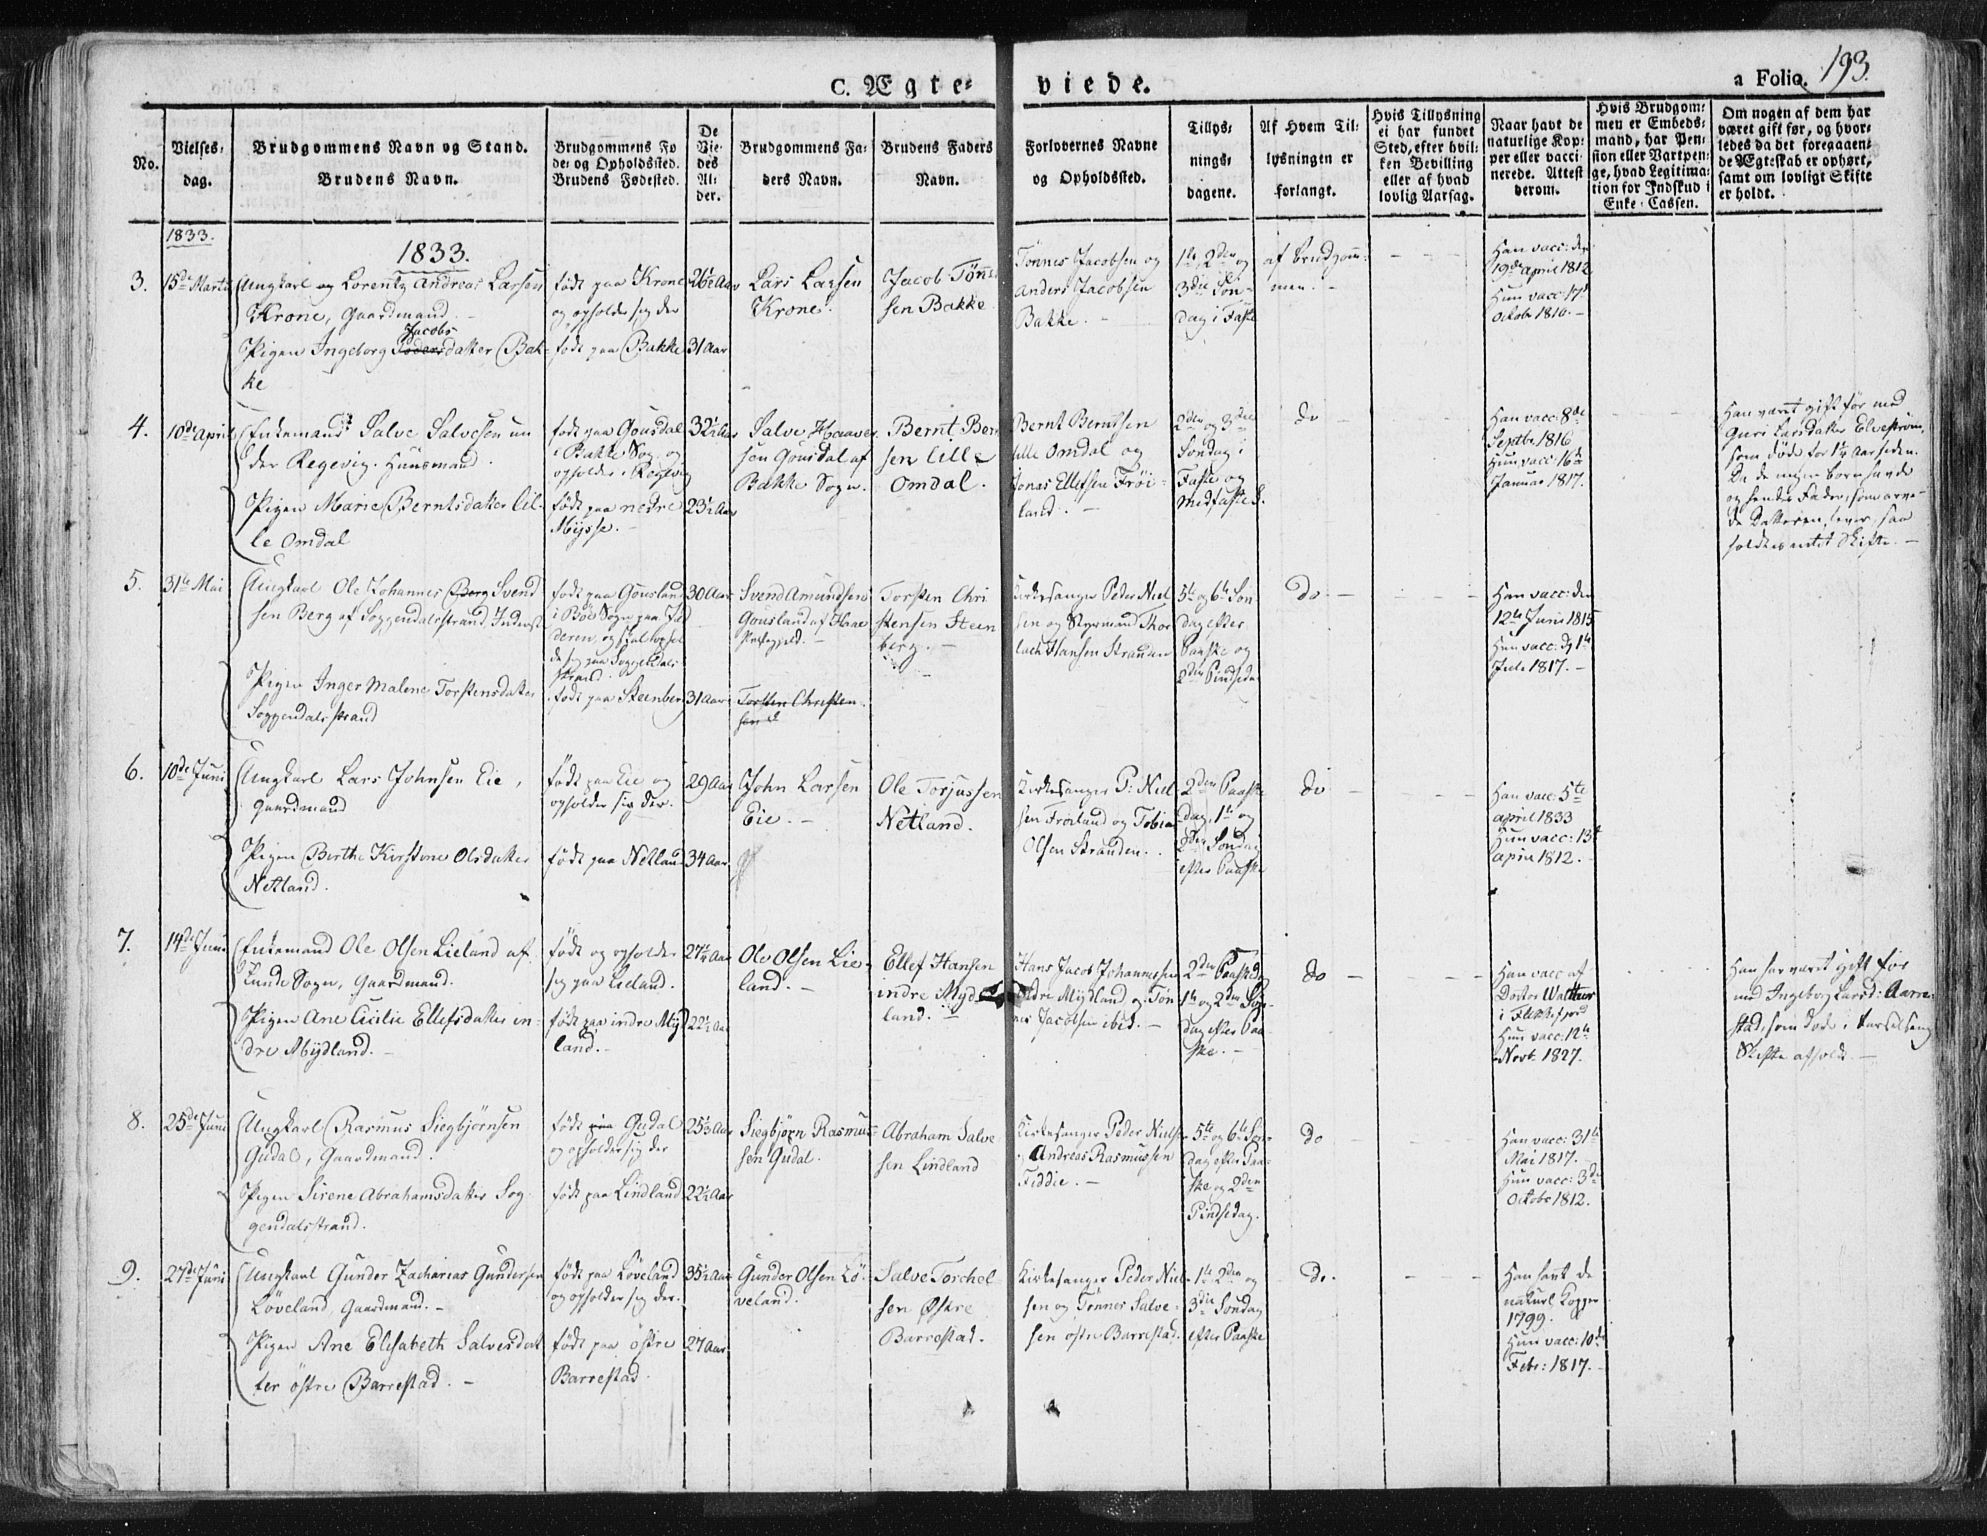 C. Ægte-
viede.
a Folio.
193.
No.
Vielses-
dag.
Brudgommens Navn og Stand.
Brudens Navn.
Brudgommens Fø
de- og Opholdssted.
Brudens Fødested.
De
Vie-
des
Al-
der.
Brudgommens Fa-
ders Navn.
Brudens Faders
Navn.
Forlovernes Navne
og Opholdssted.
Tillys-
nings-
dagene.
Af Hvem Til-
lysningen er
forlangt.
Hvis Tillysning
ei har fundet
Sted, efter hvil-
ken Bevilling
eller af hvad
lovlig Aarsag.
Naar havt de
naturlige Kop-
per eller vacci-
nerede. Attest
derom.
Hvis Brudgom-
men er Embeds-
mand, har Pen-
sion eller Vartpen-
ge, hvad Legitima-
tion for Indskud i
Enke-Cassen.
Om nogen af dem har
været gift før, og hvor-
ledes da det foregaaen-
de Ægteskab er ophørt,
samt om lovligt Skifte
er holdt.
1833.
1833.
3.
15de Marts
Ungkarl og Lorentz Andreas Larsen
Krone, Gaardmand.
Jacobs
Pigen Ingeborg datter Bak-
ke
født paa Krone
og opholder sig der
født paa Bakke
26½ Aar
31 Aar
Lars Larsen
Krone.
Jacob Tønne
sen Bakke
Tønnes Jacobsen og
Anders Jacobsen
Bakke.
1te, 2den og
3die Søn-
dag i Faste
af Brudgom-
men.
Han vacc: den
19de April 1812
Hun vacc: 17d
Octobr 1816.
4.
10de April
Enkemand Salve Salvesen un
der Regevig. Huusmand.
Pigen Marie Berntsdatter Lil-
le Omdal
født paa Gousdal
i Bakke Sog. og
opholder i Regevig
født paa nedre
Mysse.
32½ Aar
23½ Aar
Salve Haaver
sen Gousdal af
Bakke Sogn.
Bernt Bern
sen Lille
Omdal.
Bernt Berntsen
Lille Omdal og
Jonas Ellefsen Frøi-
land.
2den og 3die
Søndag i
Faste og
Midfaste S.
do
Han vacc: 8de
Septbr 1816
Hun vacc: 16de
Januar 1817.
Han været gift før med
Guri Larsdatter Elvestrøm,
som døde for 1½ Aar siden.
Da de ingen Børn havde
og hendes Fader, som arve-
de Datteren, lever, saa
holdtes intet Skifte.
5.
31te Mai
Ungkarl Ole Johannes Berg Svend
sen Berg af Soggendalsstrand, Inderst
Pigen Inger Malene Torstensdatter
Soggendalsstrand
født paa Gousland
i Bøe Sogn paa Jæ
deren, og skal ophol
de sig paa Soggendals
strand.
født paa Steenberg
30 Aar
31 Aar
Svend Amundsen
Gousland af Haae
Præstegjeld.
Torsten Christen
sen
Torsten Chri
stensen Steen
berg.
Kirkesanger Peder Niel
sen og Styrmand Thor
lach Hansen Stranden
5te og 6te Søn-
dag efter
Paaske og
2den Pindsedag
do
Han vacc: den
12te Juni 1815
Hun vacc: d. 1te
Juli 1817.
6.
10de Juni
Ungkarl Lars Johnsen Eie,
Gaardmand
Pigen Berthe Kirstine Olsdatter
Netland.
født paa Eie og
opholder sig der.
født paa Netland
29 Aar
34 Aar
John Larsen
Eie.
Ole Torjussen
Netland.
Kirkesanger P: Niel-
sen Frøiland og Tobias
Olsen Stranden.
2den Paaske
dag, 1te og
2den Søndag
efter Paaske
do
Han vacc: 5te
April 1833
Hun vacc: 13t
April 1812.
7.
14de Juni
Enkemand Ole Olsen Lieland af
Lunde Sogn, Gaardmand.
Pigen Ane Cicilie Ellefsdatter in-
dre Mydland.
født og opholder
sig paa Lieland.
født paa indre Myd
land.
27¼ Aar
22½ Aar
Ole Olsen Lie-
land.
Ellef Hansen
indre Myd
land.
Hans Jacob Johannessen
indre Mydland og Tøn
nes Jacobsen ibid.
2den Paaskedag
1te og 2den Søn-
dag efter Paa-
ske.
do
Han vacc af
Doctor Walther
i Flekkefjord
Hun vacc: 12te
Novb: 1827.
Han har været gift før
med Ingeborg Larsd: Aarre-
stad, som døde i Barselseng
Skifte afholdt.
8.
25de Juni
Ungkarl Rasmus Siegbjørnsen
Gudal, Gaardmand.
Pigen Sirene Abrahamsdatter Sog-
gendalsstrand.
født paa Gudal
og opholder sig der
født paa Lindland
25⅓ Aar
22½ Aar
Siegbjørn Rasmus-
sen Gudal.
Abraham Salve
sen Lindland
Kirkesanger Peder Nielsen
Andreas Rasmussen
Fiddie.
5te og 6te Søn-
dag efter Paa-
ske og 2den
Pindsedag.
do
Han vacc: 31te
Mai 1817.
Hun vacc: 3de
Octobr 1812.
9.
27de Juni
Ungkarl Gunder Zacharias Gundersen
Løveland, Gaardmand.
Pigen Ane Elisabeth Salvesdat
ter østre Barrestad.
født paa Løveland
og opholder sig der.
født paa østre
Barrestad.
35½ Aar
27 Aar
Gunder Olsen Lø-
veland.
Salve Torchel-
sen Østre
Barrestad.
Kirkesanger Peder Niel-
sen og Tønnes Salve-
sen østre Barrestad.
1te 2den og
3die Søndag
efter Paaske
do.
Han havt de
naturl. Kopper
1799.
Hun vacc: 10de
Febr: 1817.